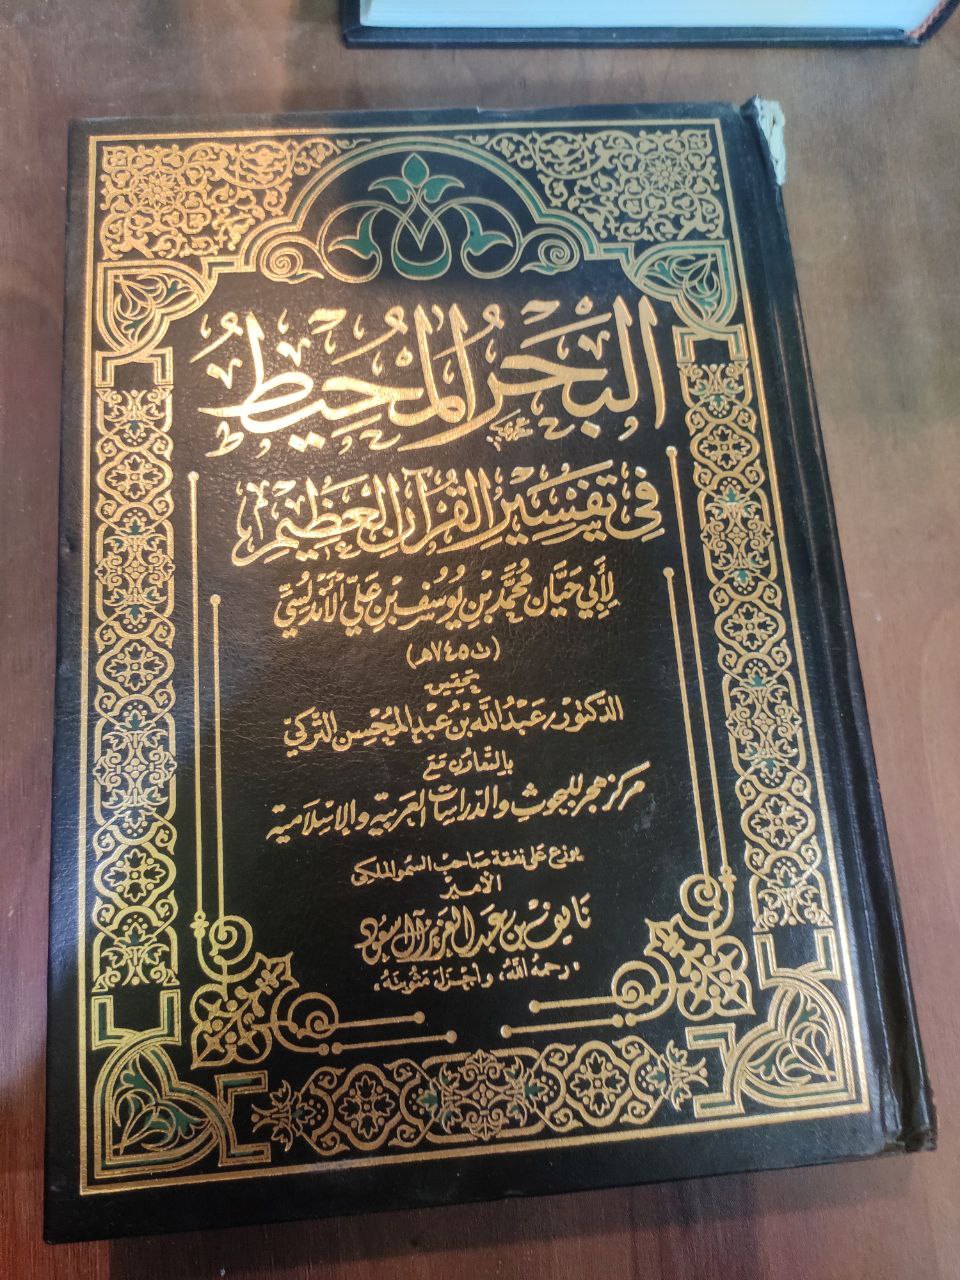 البَحْرُ المُحِيطُ
فِي تَفْسِيرِ القُرْآنِ العَظِيمِ
لِأَبِي حَيَّان مُحَمَّد بْن يُوسُف بْن عَلِي الأَنْدَلُسِيّ
(ت ٧٤٥هـ)
تحقيق
الدكتور/ عَبْدُ اللَّه بْنُ عَبْدِ المُحْسِن التُّركي
بالتعاون مع
مركز هجر للبحوث والدراسات العربية والإسلامية
يوزع على نفقة صاحب السمو الملكي
الأمير
نايف بن عبد العزيز آل سعود
"رحمه الله، وأجزل مثوبته"